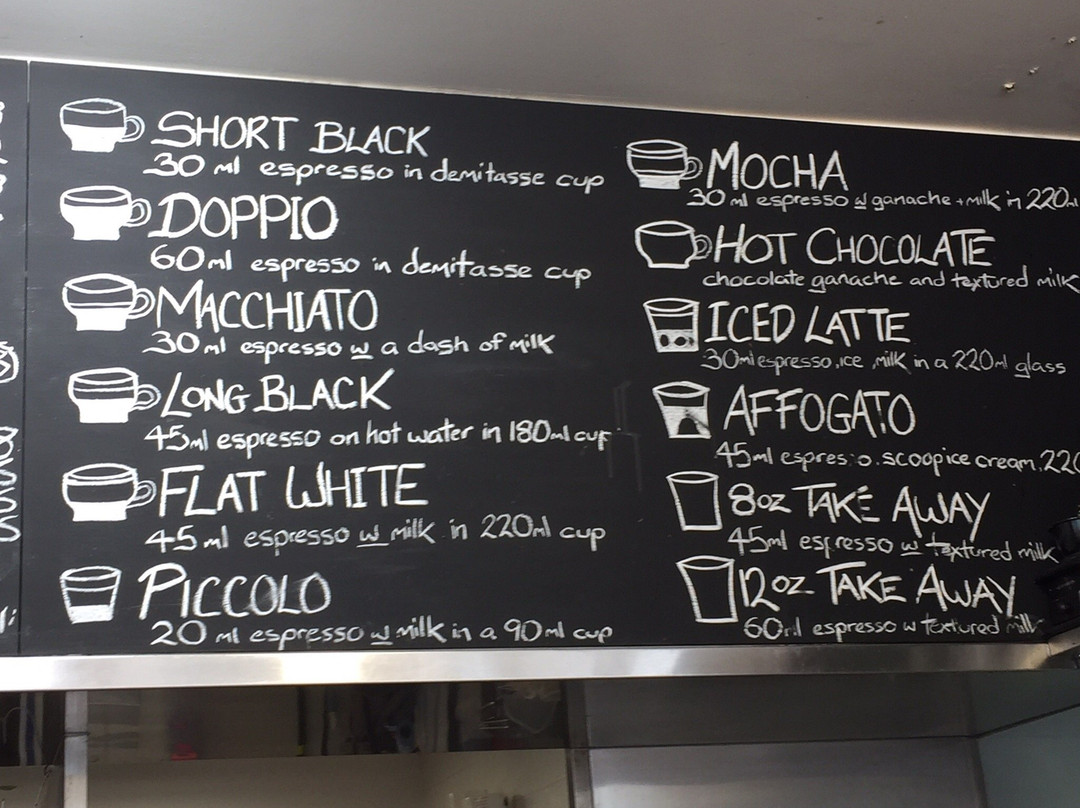 SHORT BLACK
30 ml espresso in demitasse cup
DOPPIO
60ml espresso in demitasse cup
MACCHIATO
30 ml espresso w a dash of milk
LONG BLACK
45ml espresso on hot water in 180ml cup
FLAT WHITE
45 ml espresso w milk in 220ml cup
PICCOLO
20 ml espresso w milk in a 90ml cup
MOCHA
30 ml espresso w ganache + milk in 220ml
HOT CHOCOLATE
chocolate ganache and textured milk
ICED LATTE
30ml espresso, ice, milk in a 220ml glass
AFFOGATO
45ml espresso. scoop ice cream, 220
8oz TAKE AWAY
45ml espresso w textured milk
12oz TAKE AWAY
60ml espresso w textured milk